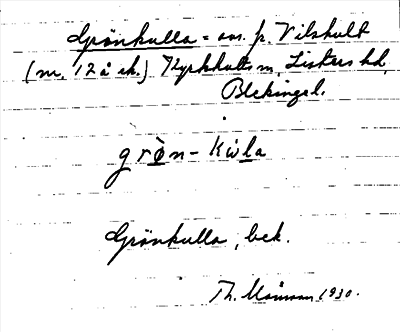 Grönkulla = om. p. Vilshult
(nr. 12 å ek.) Kyrkhults sn, Listers hd,
Blekinge l.
grön-kùla
Grönkulla, bek.
Th. Månsson 1930.